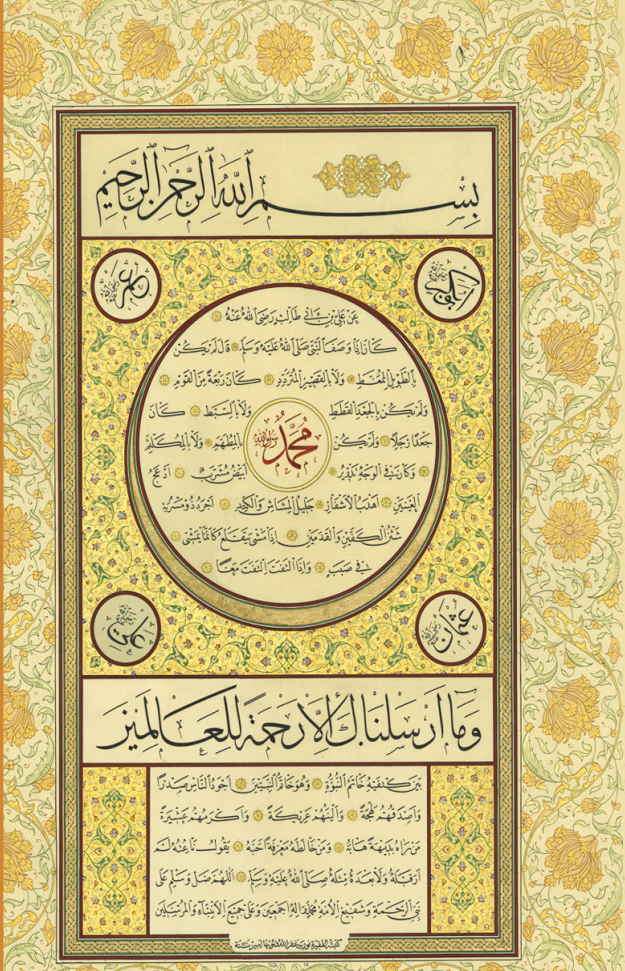 بسم الله الرحمن الرحيم
ابو بكر رضي الله عنه
عمر رضي الله عنه
عن علي بن ابي طالب رضي الله عنه
كان اذا وصف النبي صلى الله عليه وسلم قال لم يكن
بالطويل الممغط ولا بالقصير المتردد كان ربعة من القوم
ولم يكن بالجعد القطط ولا بالسبط كان
جعدا رجلا ولم يكن بالمطهم ولا بالمكلثم
محمد
وكان في الوجه تدوير ابيض مشرب ادعج
العينين اهدب الاشفار جليل المشاش والكتد اجرد ذو مسربة
شثن الكفين والقدمين اذا مشى يتقلع كانما يمشي
في صبب واذا التفت التفت معا
عثمان رضي الله عنه
علي رضي الله عنه
وما ارسلناك الا رحمة للعالمين
بين كتفيه خاتم النبوة وهو خاتم النبيين اجود الناس صدرا
واصدقهم لهجة والينهم عريكة واكرمهم عشيرة
من راه بديهة هابه ومن خالطه معرفة احبه يقول ناعته لم
ار قبله ولا بعده مثله صلى الله عليه وسلم اللهم صل وسلم على
نبي الرحمة وشفيع الامة محمد واله اجمعين وعلى جميع الانبياء والمرسلين